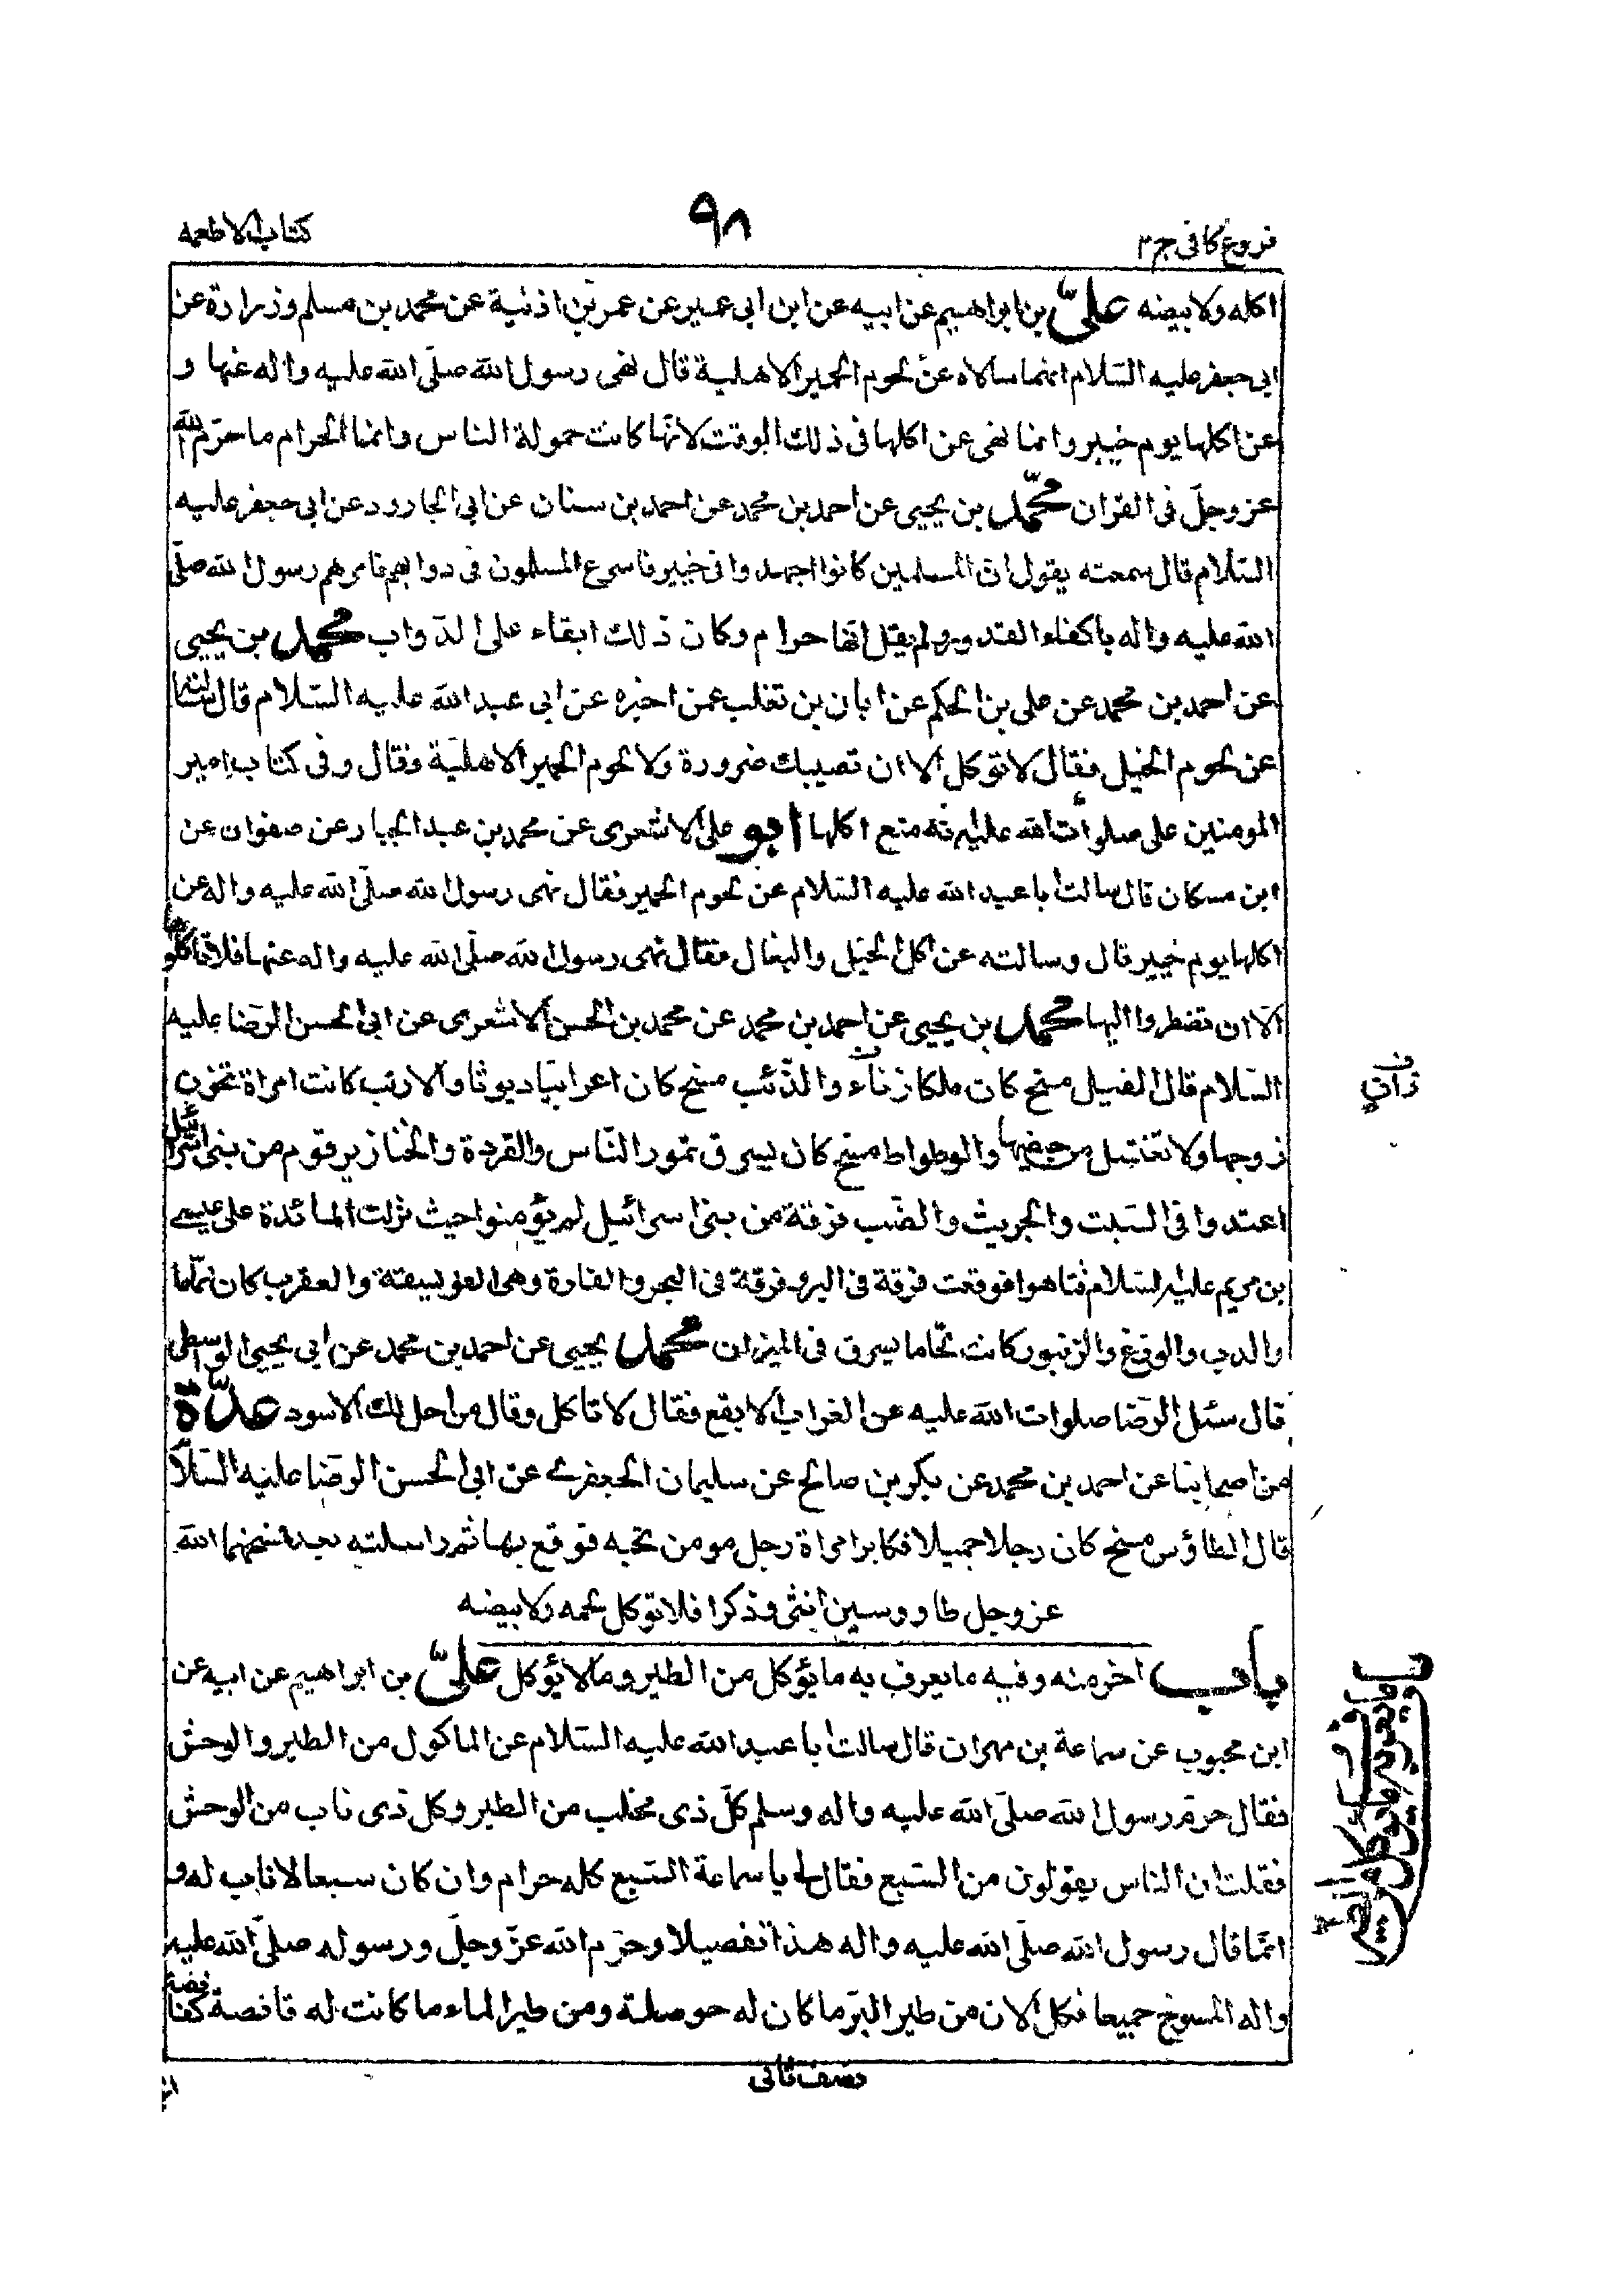 فروع کافی ج۲
۹۸
کتاب الاطعمه
اکله ولا بیضه علیّ بن ابراهیم عن ابیه عن ابن ابی عمیر عن عمر بن اذنیة عن محمد بن مسلم وزرارة عن
ابی جعفر علیه السّلام انهما سالاه عن لحوم الحمیر الاهلیة قال نهی رسول الله صلّی الله علیه واله عنها و
عن اکلها یوم خیبر وانما نهی عن اکلها فی ذلك الوقت لانّها کانت حمولة الناس وانما الحرام ما حرّم الله
عز وجلّ فی القران محمّد بن یحیی عن احمد بن محمد عن احمد بن سنان عن ابی الجارود عن ابی جعفر علیه
السّلام قال سمعته یقول ان المسلمین کانوا اجهدوا فی خیبر فاسرع المسلمون فی دوابهم فامرهم رسول الله صلّی
الله علیه واله باکفاء القدور ولم یقل انّها حرام وکان ذلك ابقاء علی الدّواب محمد بن یحیی
عن احمد بن محمد عن علی بن الحکم عن ابان بن تغلب عمن اخبره عن ابی عبد الله علیه السّلام قال سالته
عن لحوم الخیل فقال لا تؤکل الا ان تصیبك ضرورة ولا لحوم الحمیر الاهلیّة وقال وفی کتاب امیر
المومنین علی صلوات الله علیه انه منع اکلها ابو علی الاشعری عن محمد بن عبد الجبار عن صفوان عن
ابن مسکان قال سالت ابا عبد الله علیه السّلام عن لحوم الحمیر فقال نهی رسول الله صلّی الله علیه واله عن
اکلها یوم خیبر قال وسالته عن اکل الخیل والبغال فقال نهی رسول الله صلّی الله علیه واله عنها فلا تاکلوها
الّا ان تضطروا الیها محمد بن یحیی عن احمد بن محمد عن محمد بن الحسن الاشعری عن ابی الحسن الرّضا علیه
السّلام قال الفیل مسخ کان ملکا زناء والذّئب مسخ کان اعرابیّا دیوثا والارنب کانت امراة تخون
زوجها ولا تغتسل من حیضها والوطواط مسخ کان یسرق تمور النّاس والقردة والخنازیر قوم من بنی اسرائیل
اعتدوا فی السّبت والجریث والضّب فرقة من بنی اسرائیل لم یؤمنوا حیث نزلت المائدة علی عیسی
بن مریم علیه السّلام فتاهوا فوقعت فرقة فی البر وفرقة فی البحر والفارة وهی الفویسقة والعقرب کان نمّاما
والدب والوزغ والزنبور کانت لحّاما یسرق فی المیزان محمد یحیی عن احمد بن محمد عن ابی یحیی الواسطی
قال سئل الرّضا صلوات الله علیه عن الغراب الابقع فقال لا تاکل وقال من احل لك الاسود عدّة
من اصحابنا عن احمد بن محمد عن بکر بن صالح عن سلیمان الجعفری عن ابی الحسن الرضا علیه السّلا
قال الطاؤس مسخ کان رجلا جمیلا فکابر امراة رجل مومن تحبه فوقع بها ثم راسلته بعد فمسخهما الله
عز وجل طاووسین انثی وذکرا فلا تؤکل لحمه ولا بیضه
باب اخر منه وفیه ما یعرف به ما یؤکل من الطیر وما لا یؤکل علیّ بن ابراهیم عن ابیه عن
ابن محبوب عن سماعة بن مهران قال سالت ابا عبد الله علیه السّلام عن الماکول من الطیر والوحش
فقال حرم رسول الله صلّی الله علیه واله وسلم کلّ ذی مخلب من الطیر وکل ذی ناب من الوحش
فقلت ان الناس یقولون من السّبع فقال لی یا سماعة السّبع کله حرام وان کان سبعا لا ناب له و
انمّا قال رسول الله صلّی الله علیه واله هذا تفصیلا وحرّم الله عزّ وجلّ ورسوله صلّی الله علیه
واله المسوخ جمیعا فکل الان من طیر البرّ ما کان له حوصلة ومن طیر الماء ما کانت له قانصة کقانصة
نصف ثانی
زان
ن